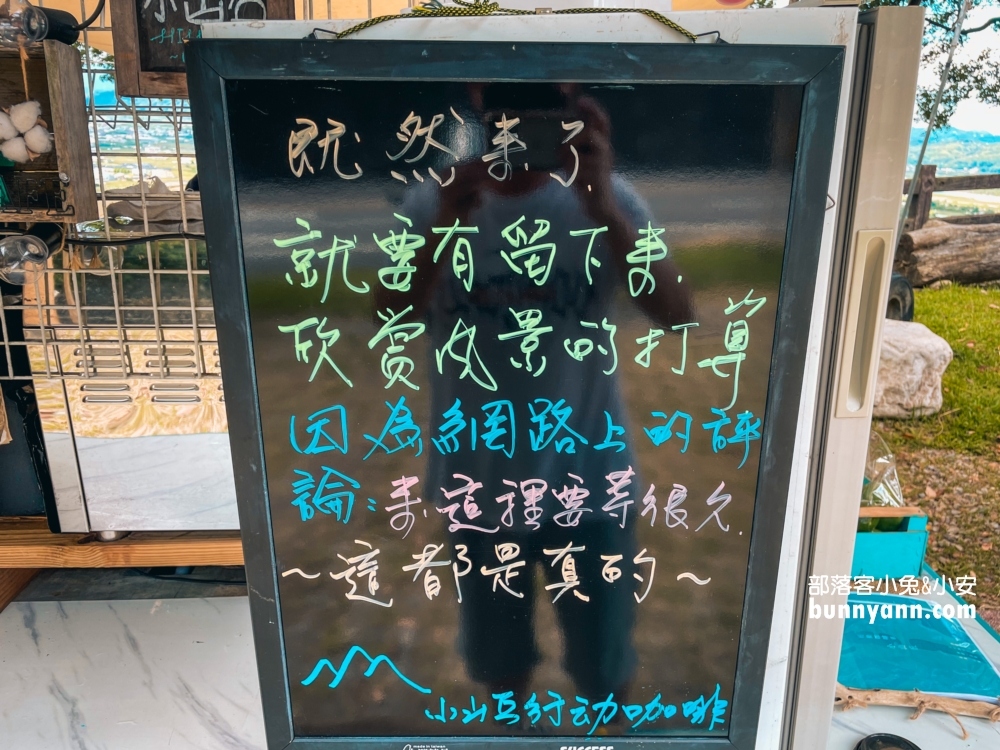 小山
既然来了.
就要有留下来.
欣賞風景的打算
因為網路上的評
論:来這裡要等很久.
~這都是真的~
小山丘行动咖啡
部落客小兔&小安
bunnyann.com
made in taiwan
SUCCESS